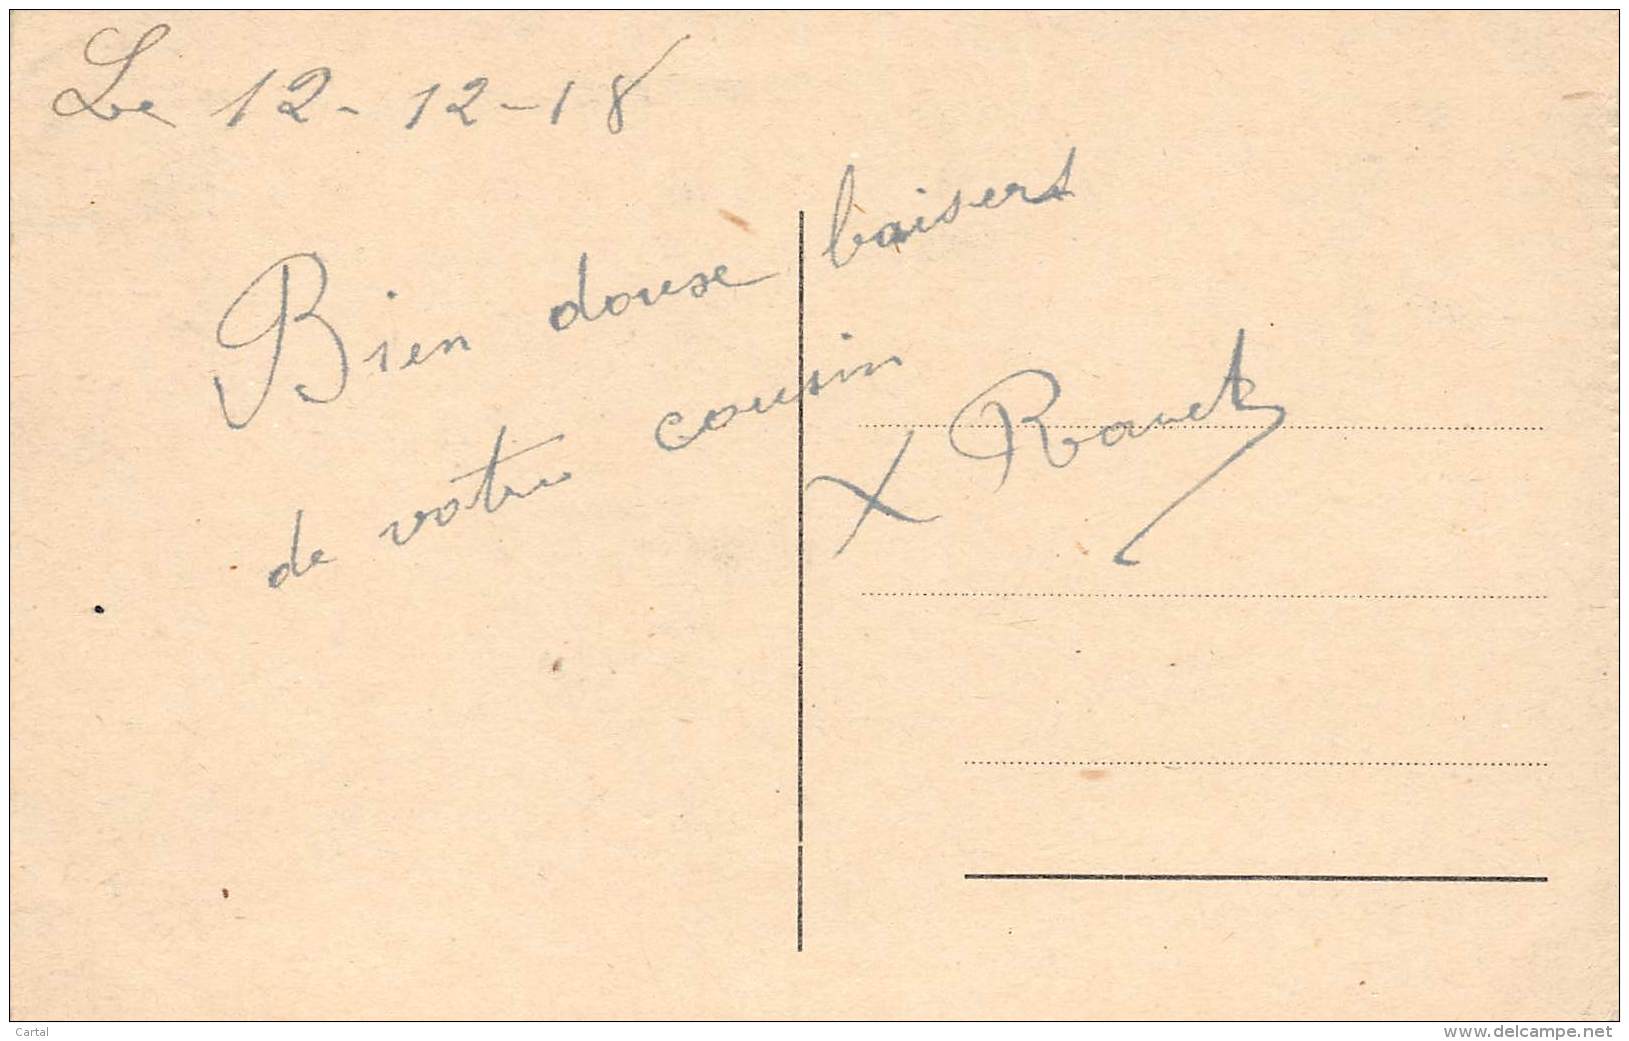 Le 12-12-18
Bien douse baisers
de votre cousin
X
Cartal
www.delcampe.net